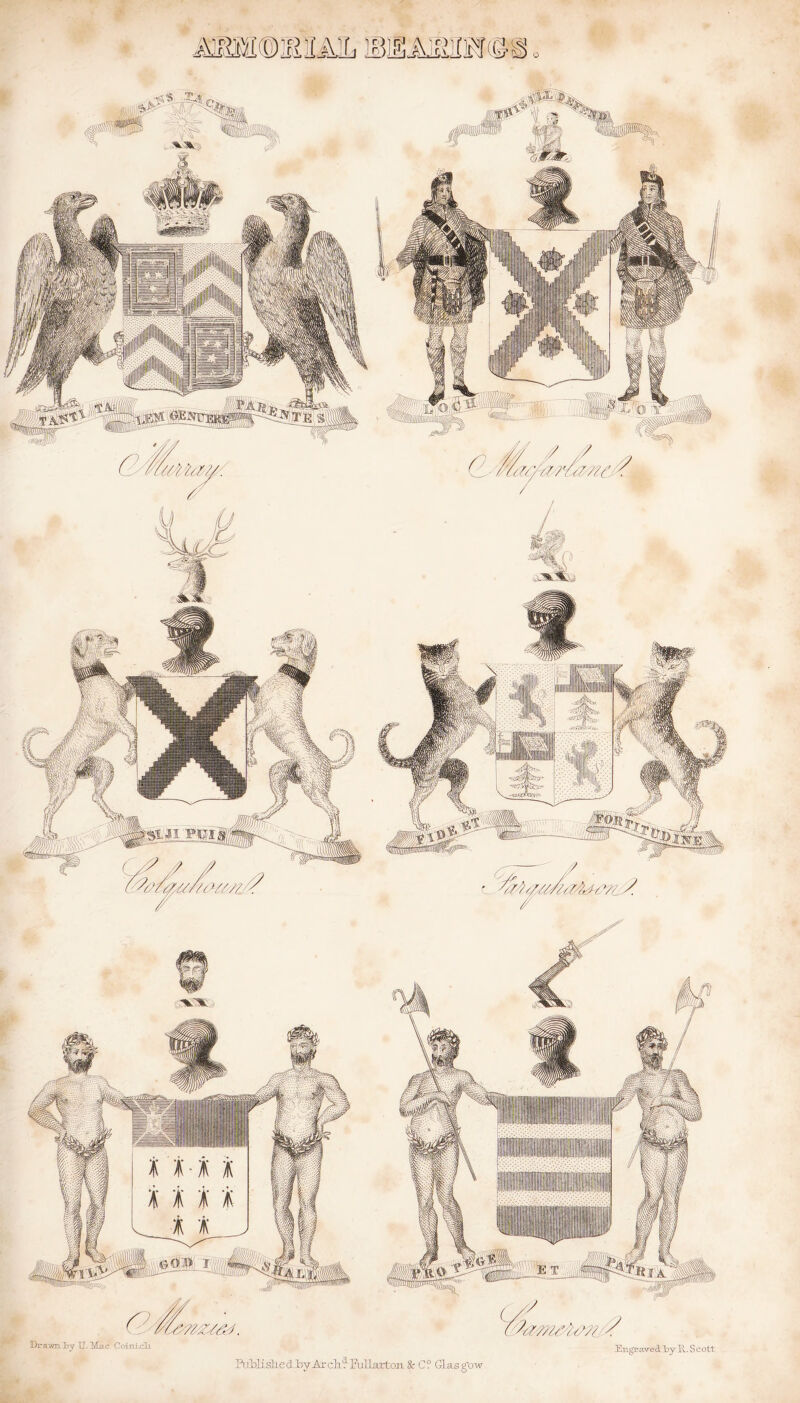 ARMORIAL BEARINGS.
SANS TACHE
THIS I'LL DEFEND
TANTI TA LEM GENUERE PARENTES
LOCH SLOY
Murray.
Macfarlane.
SI JI PUIS
FIDE ET FORTITUDINE
Colquhoun.
Farquharson.
WILL GOD I SHALL
PRO REGE ET PATRIA
Menzies.
Cameron.
Drawn by U. Mac Coinich
Engraved by R. Scott
Published by Archd. Fullarton & Co. Glasgow